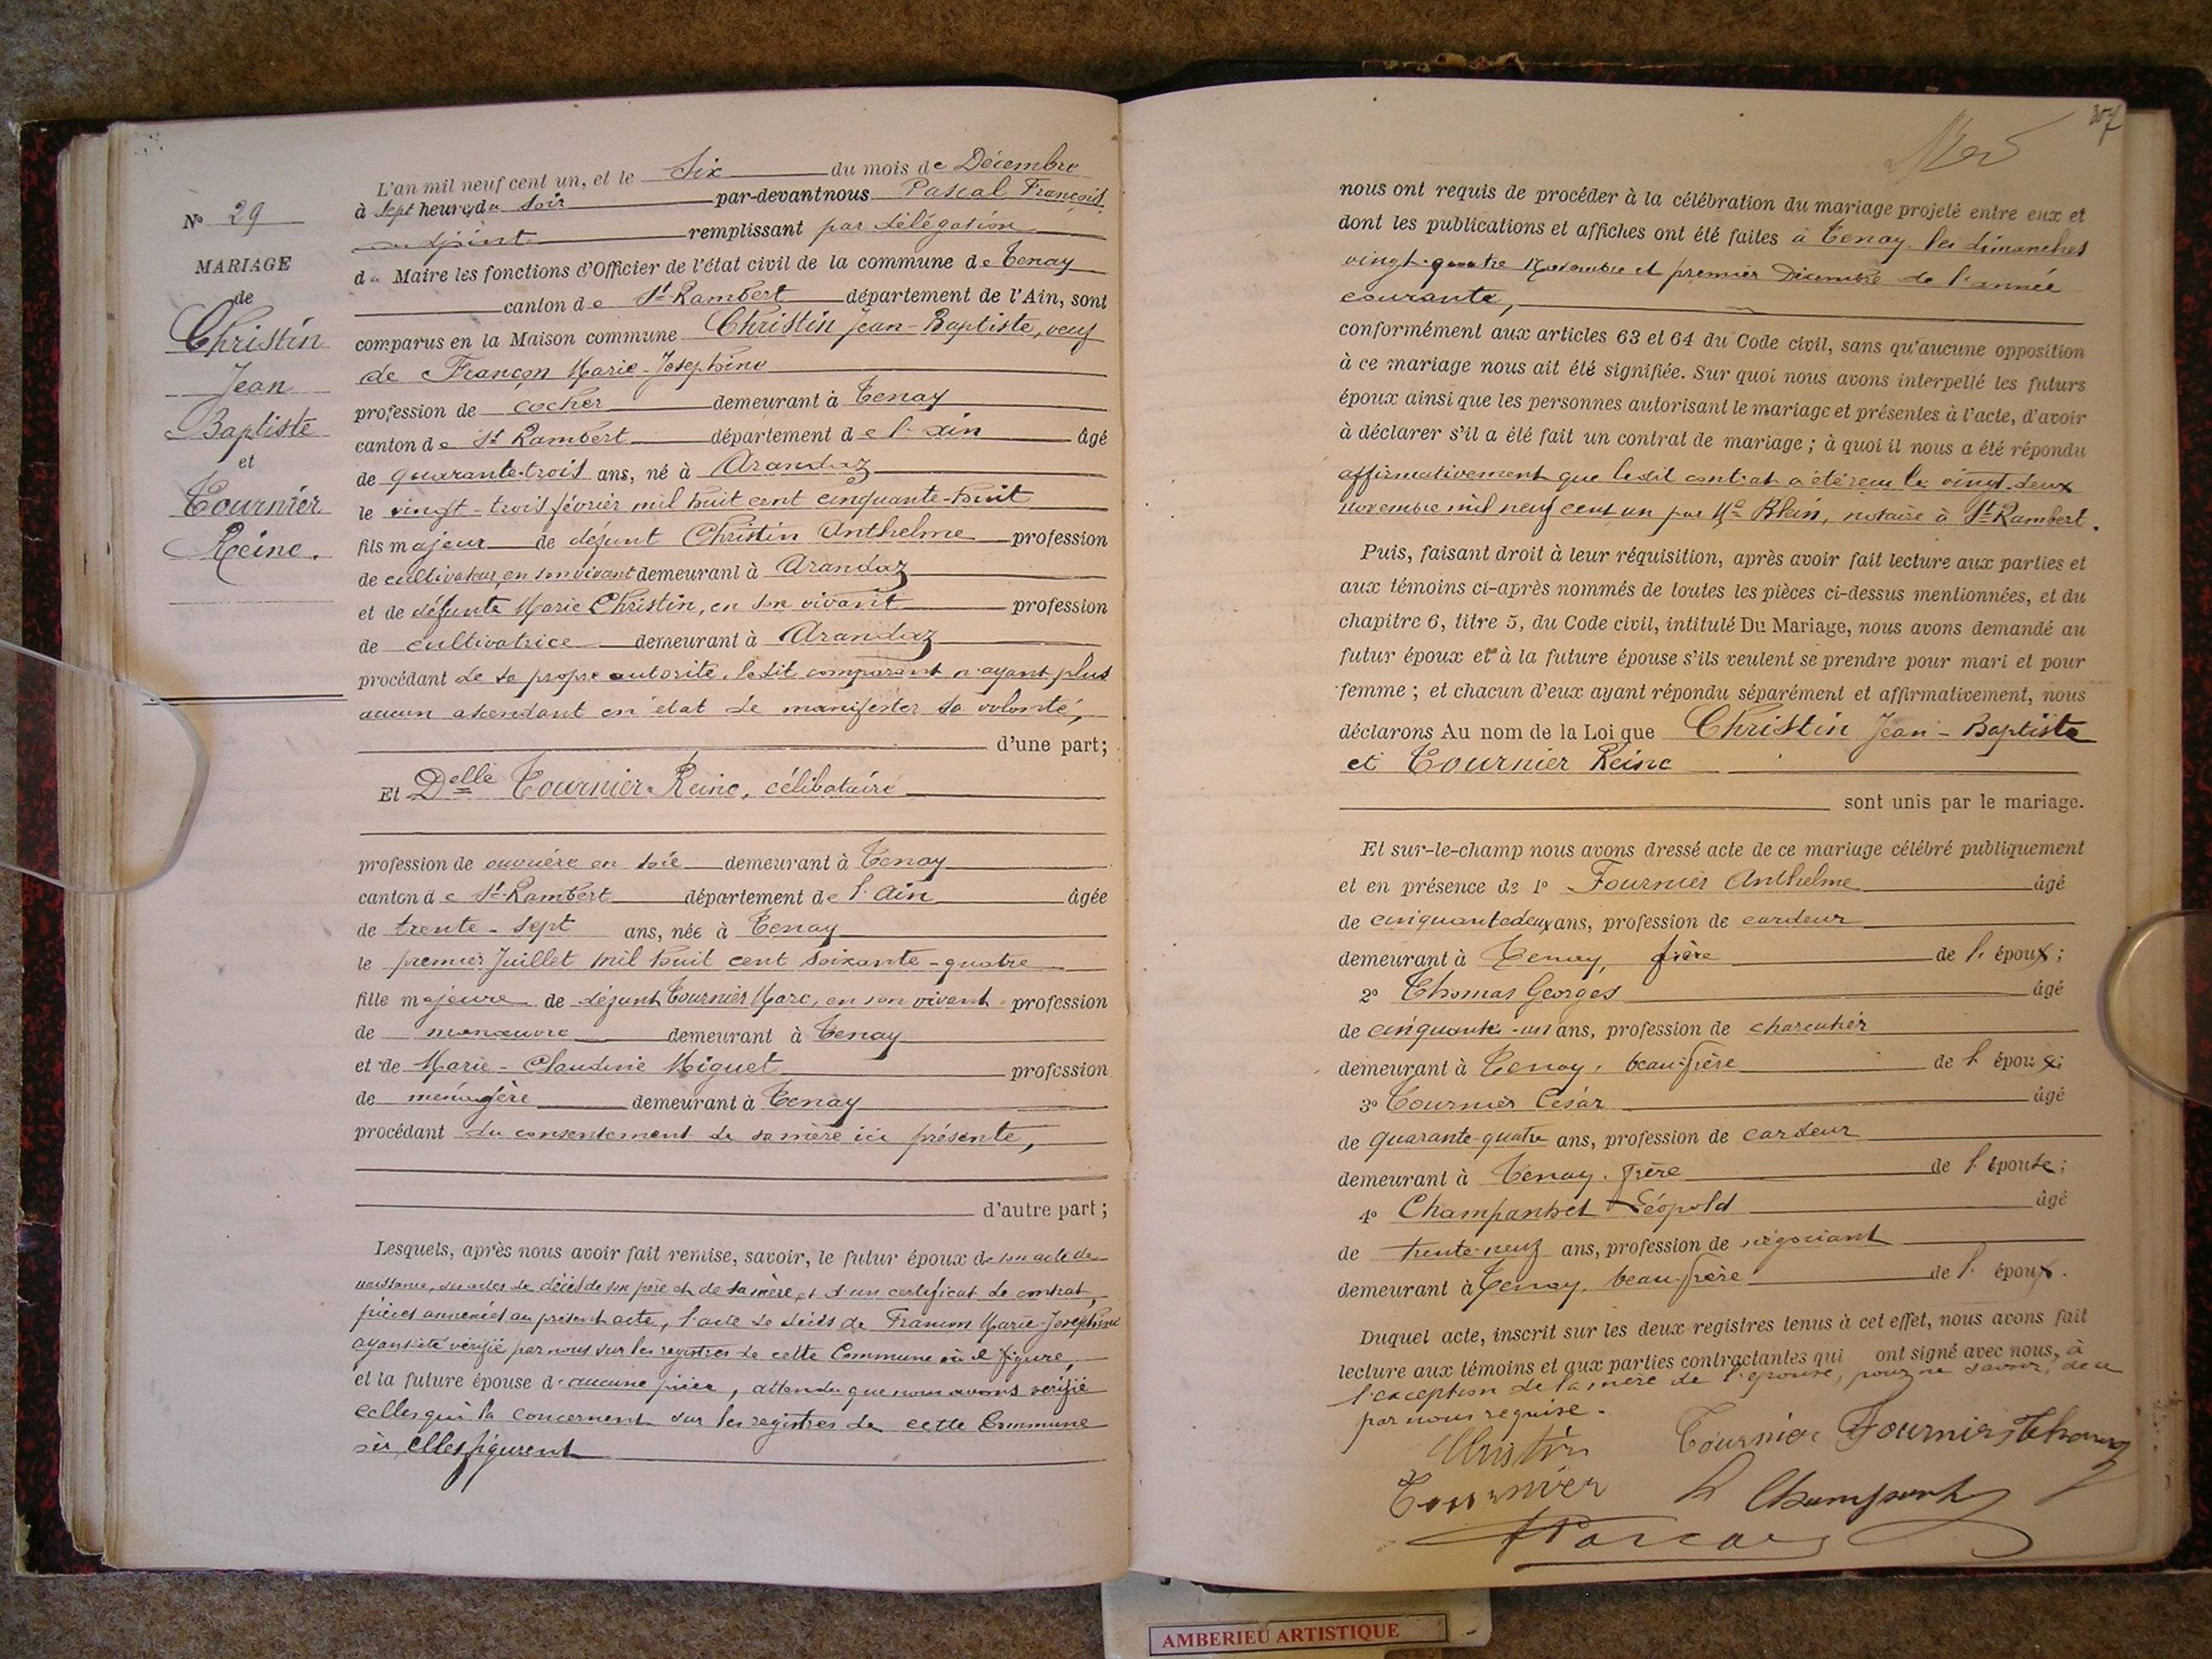 L'an mil neuf cent un, et le Six du mois de Décembre
à Sept heures du soir par-devant nous Pascal François,
adjoint remplissant par délégation
du Maire les fonctions d'Officier de l'état civil de la commune de Tenay
canton de St-Rambert département de l'Ain, sont
comparus en la Maison commune Christin Jean-Baptiste, veuf
de Françon Marie-Joséphine
profession de cocher demeurant à Tenay
canton de St Rambert département de l'ain âgé
de quarante-trois ans, né à Arandaz
le vingt-trois février mil huit cent cinquante-huit
fils majeur de défunt Christin Anthelme profession
de cultivateur, en son vivant demeurant à Arandaz
et de défunte Marie Christin, en son vivant profession
de cultivatrice demeurant à Arandaz
procédant de sa propre autorité, ledit comparant n'ayant plus
aucun ascendant en état de manifester sa volonté,
d'une part;
Et Delle Tournier Reine, célibataire
profession de ouvrière en soie demeurant à Tenay
canton de St-Rambert département de l'Ain âgée
de trente-sept ans, née à Tenay
le premier Juillet mil huit cent soixante-quatre
fille majeure de défunt Tournier Marc, en son vivant profession
de manœuvre demeurant à Tenay
et de Marie-Claudine Miguet profession
de ménagère demeurant à Tenay
procédant du consentement de sa mère ici présente,
d'autre part;
Lesquels, après nous avoir fait remise, savoir, le futur époux de son acte de
naissance, des actes de décès de son père et de sa mère, et d'un certificat de contrat,
pièces annexées au présent acte, l'acte de décès de Françon Marie-Joséphine
ayant été vérifié par nous sur les registres de cette Commune où il figure,
et la future épouse d'aucune pièce, attendu que nous avons vérifié
celles qui la concernent sur les registres de cette Commune
où elles figurent
No 29
MARIAGE
de
Christin
Jean
Baptiste
et
Tournier
Reine.
207
nous ont requis de procéder à la célébration du mariage projeté entre eux et
dont les publications et affiches ont été faites à Tenay les dimanches
vingt-quatre Novembre et premier Décembre de l'année
courante,
conformément aux articles 63 et 64 du Code civil, sans qu'aucune opposition
à ce mariage nous ait été signifiée. Sur quoi nous avons interpellé les futurs
époux ainsi que les personnes autorisant le mariage et présentes à l'acte, d'avoir
à déclarer s'il a été fait un contrat de mariage; à quoi il nous a été répondu
affirmativement que ledit contrat a été reçu le vingt-deux
novembre mil neuf cent un par Me Blein, notaire à St-Rambert.
Puis, faisant droit à leur réquisition, après avoir fait lecture aux parties et
aux témoins ci-après nommés de toutes les pièces ci-dessus mentionnées, et du
chapitre 6, titre 5, du Code civil, intitulé Du Mariage, nous avons demandé au
futur époux et à la future épouse s'ils veulent se prendre pour mari et pour
femme; et chacun d'eux ayant répondu séparément et affirmativement, nous
déclarons Au nom de la Loi que Christin Jean-Baptiste
et Tournier Reine
sont unis par le mariage.
Et sur-le-champ nous avons dressé acte de ce mariage célébré publiquement
et en présence de 1o Fournier Anthelme âgé
de cinquante deux ans, profession de cardeur
demeurant à Tenay, frère de l'époux;
2o Thomas Georges âgé
de cinquante-un ans, profession de charcutier
demeurant à Tenay, beau-frère de l'époux;
3o Tournier César âgé
de quarante-quatre ans, profession de cardeur
demeurant à Tenay. frère de l'épouse;
4o Champanhet Léopold âgé
de trente-neuf ans, profession de négociant
demeurant à Tenay, beau-frère de l'époux.
Duquel acte, inscrit sur les deux registres tenus à cet effet, nous avons fait
lecture aux témoins et aux parties contractantes qui ont signé avec nous, à
l'exception de la mère de l'épouse, pour ne savoir, de ce
par nous requise.
Christin Tournier Fournier Thomas
Tournier L Champanhet
Pascal
AMBERIEU ARTISTIQUE